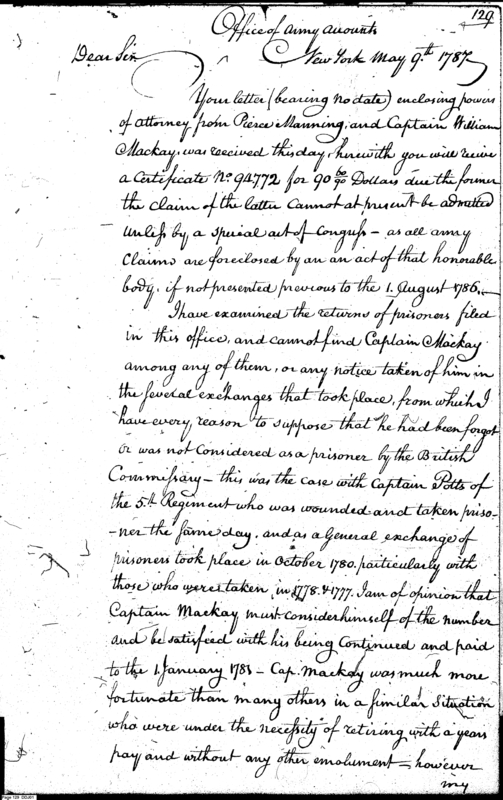 129
Office of Army Accounts
New York May 9th. 1787.
Dear Sir
Your letter (bearing no date) enclosing powers
of attorney from Pierce Manning, and Captain William
Mackay, was received this day, herewith you will receive
a Certificate No. 94772 for 90 60/90 Dollars due the former
the claim of the latter cannot at present be admitted
unless by a special act of Congress - as all army
Claims are foreclosed by an an act of that honorable
body, if not presented previous to the 1. August 1786.
I have examined the returns of prisoners filed
in this office, and cannot find Captain Mackay
among any of them, or any notice taken of him in
the several exchanges that took place, from which I
have every reason to suppose that he had been forgot
or was not Considered as a prisoner by the British
Commissary - this was the case with Captain Potts of
the 5.th Regiment who was wounded and taken priso-
-ner the same day. and as a General exchange of
prisoners took place in October 1780. particularly with
those who were taken in 1778. & 1777. I am of opinion that
Captain Mackay must consider himself of the number
and be satisfied with his being Continued and paid
to the 1 January 1781 - Cap. Mackay was much more
fortunate than many others in a similar Situation
who were under the necessity of retiring with a years
pay and without any other emolument - however
my
Page 129